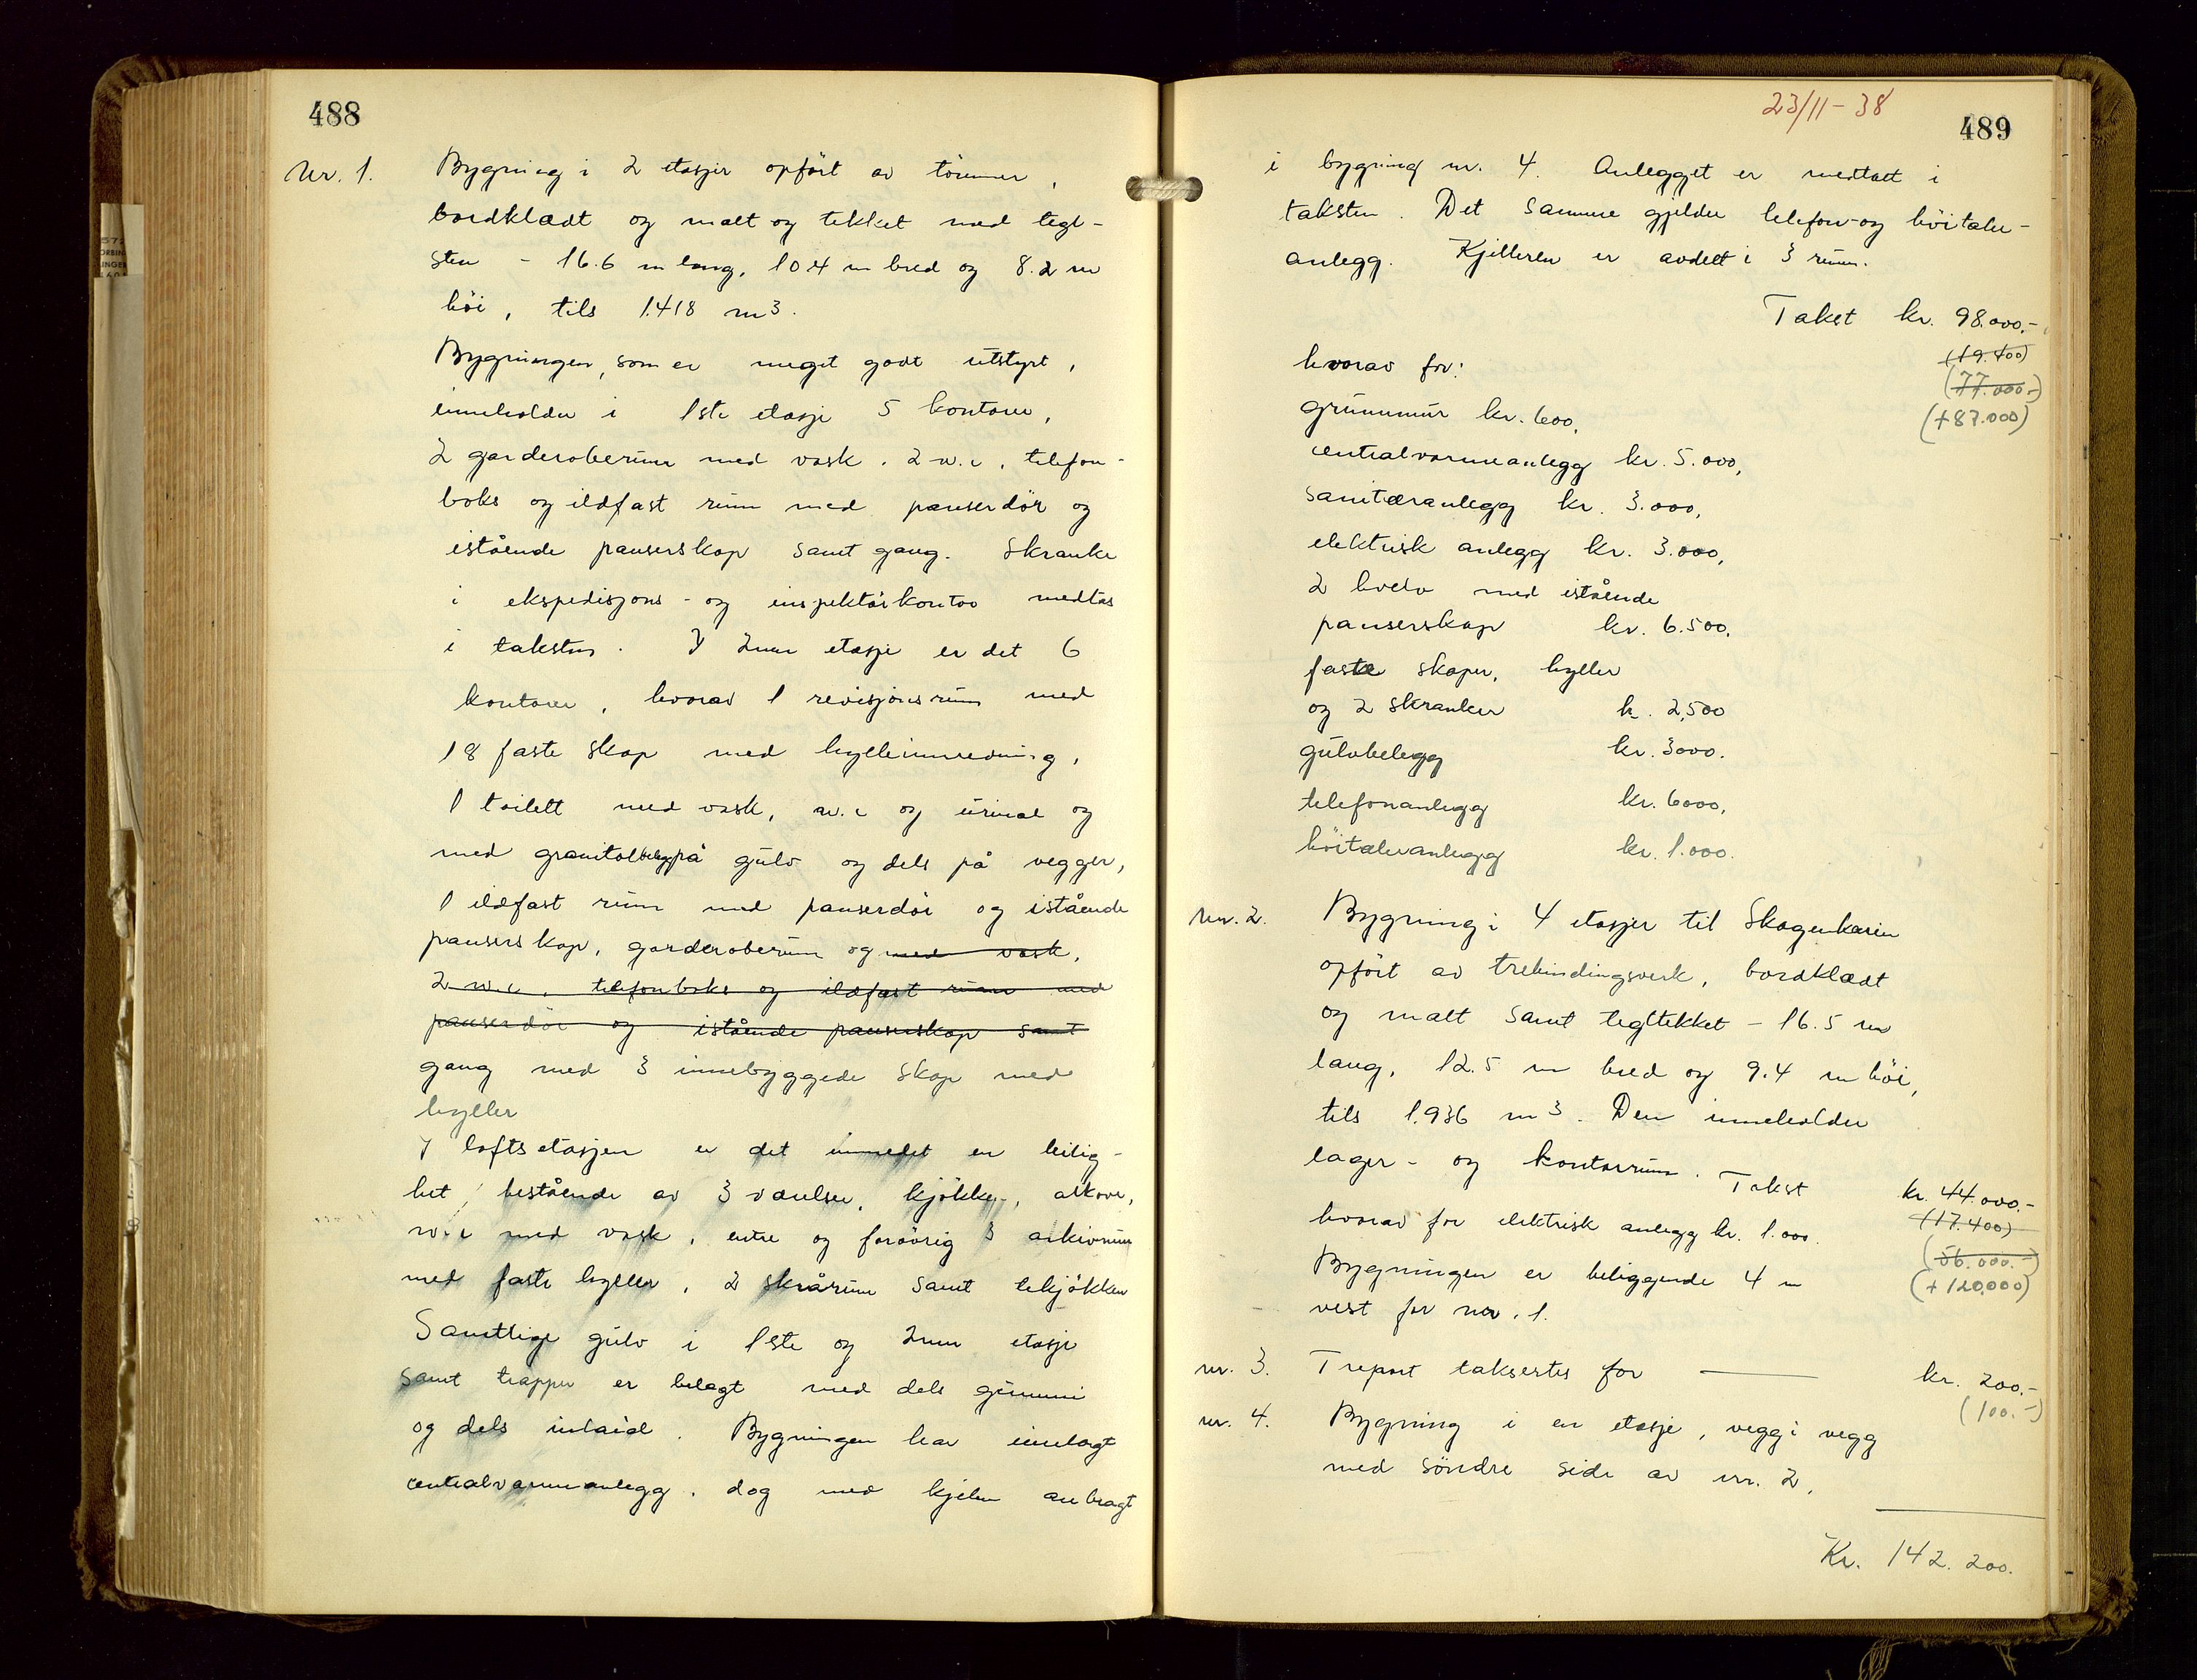 488
Nr. 1. Bygning i 2 etasjer opfört av tömmer,
bordklædt og malt og tekket med tegl-
sten - 16.6 m lang, 10.4 m bred og 8.2 m
höi, tils 1.418 m3.
Bygningen, som er meget godt utstyrt,
inneholder i 1ste etasje 5 kontorer,
2 garderoberum med vask, 2 w.c, telefon-
boks og ildfast rum med panserdör og
istående panserskap samt gang. Skranke
i ekspedisjons- og inspektörkontor medtas
i taksten. I 2nen etasje er det 6
kontorer, hvorav 1 revisjonsrum med
18 faste skap med hylleinnredning,
1 toilett med vask, w.c og urinal og
med granitolbelegg på gulv og dels på vegger,
1 ildfast rum med panserdör og istående
panserskap, garderoberum og med vask,
2 w.c, telefonboks og ildfast rum med
panserdör og istående panserskap samt
gang med 3 innebyggede skap med
hyller
I loftsetasjen er det innredet en leilig-
het, bestående av 3 værelser, kjökken, alkove,
w.c med vask, entre og forövrig 3 arkivrum
med faste hyller, 2 skrårum samt tekjökken
Samtlige gulv i 1ste og 2nen etasje
samt trapper er belagt med dels gummi
og dels inlaid. Bygningen har innlagt
centralvarmeanlegg, dog med kjelen anbragt
23/11-38
489
i bygning nr. 4. Anlegget er medtatt i
taksten. Det samme gjelder telefon-og höitaler-
anlegg. Kjelleren er avdelt i 3 rum.
Takst kr. 98.000.-
(19.400)
hvorav for:
(77.000.-)
grunnmur kr. 600,
(+87.000)
centralvarmeanlegg kr. 5.000,
sanitæranlegg kr. 3.000,
elektrisk anlegg kr. 3.000,
2 hvelv med istående
panserskap kr. 6.500,
faste skaper, hyller
og 2 skranker kr. 2,500
gulvbelegg kr. 3000.
telefonanlegg kr. 6000,
höitaleranlegg kr. 1.000.
Nr. 2. Bygning i 4 etasjer til Skagenkaien
opfört av trebindingsverk, bordklædt
og malt samt tegltekket - 16.5 m
lang, 12.5 m bred og 9.4 m höi,
tils 1.936 m3. Den inneholder
lager- og kontorrum. Takst kr. 44.000.-
(17.400)
hvorav for elektrisk anlegg kr. 1.000.
(56.000.-)
Bygningen er beliggende 4 m
(+120,000)
vest for nr. 1.
nr. 3. Treport takseres for kr. 200.-
(100.-)
nr. 4. Bygning i en etasje, vegg i vegg
med söndre side av nr. 2.
Kr. 142.200.